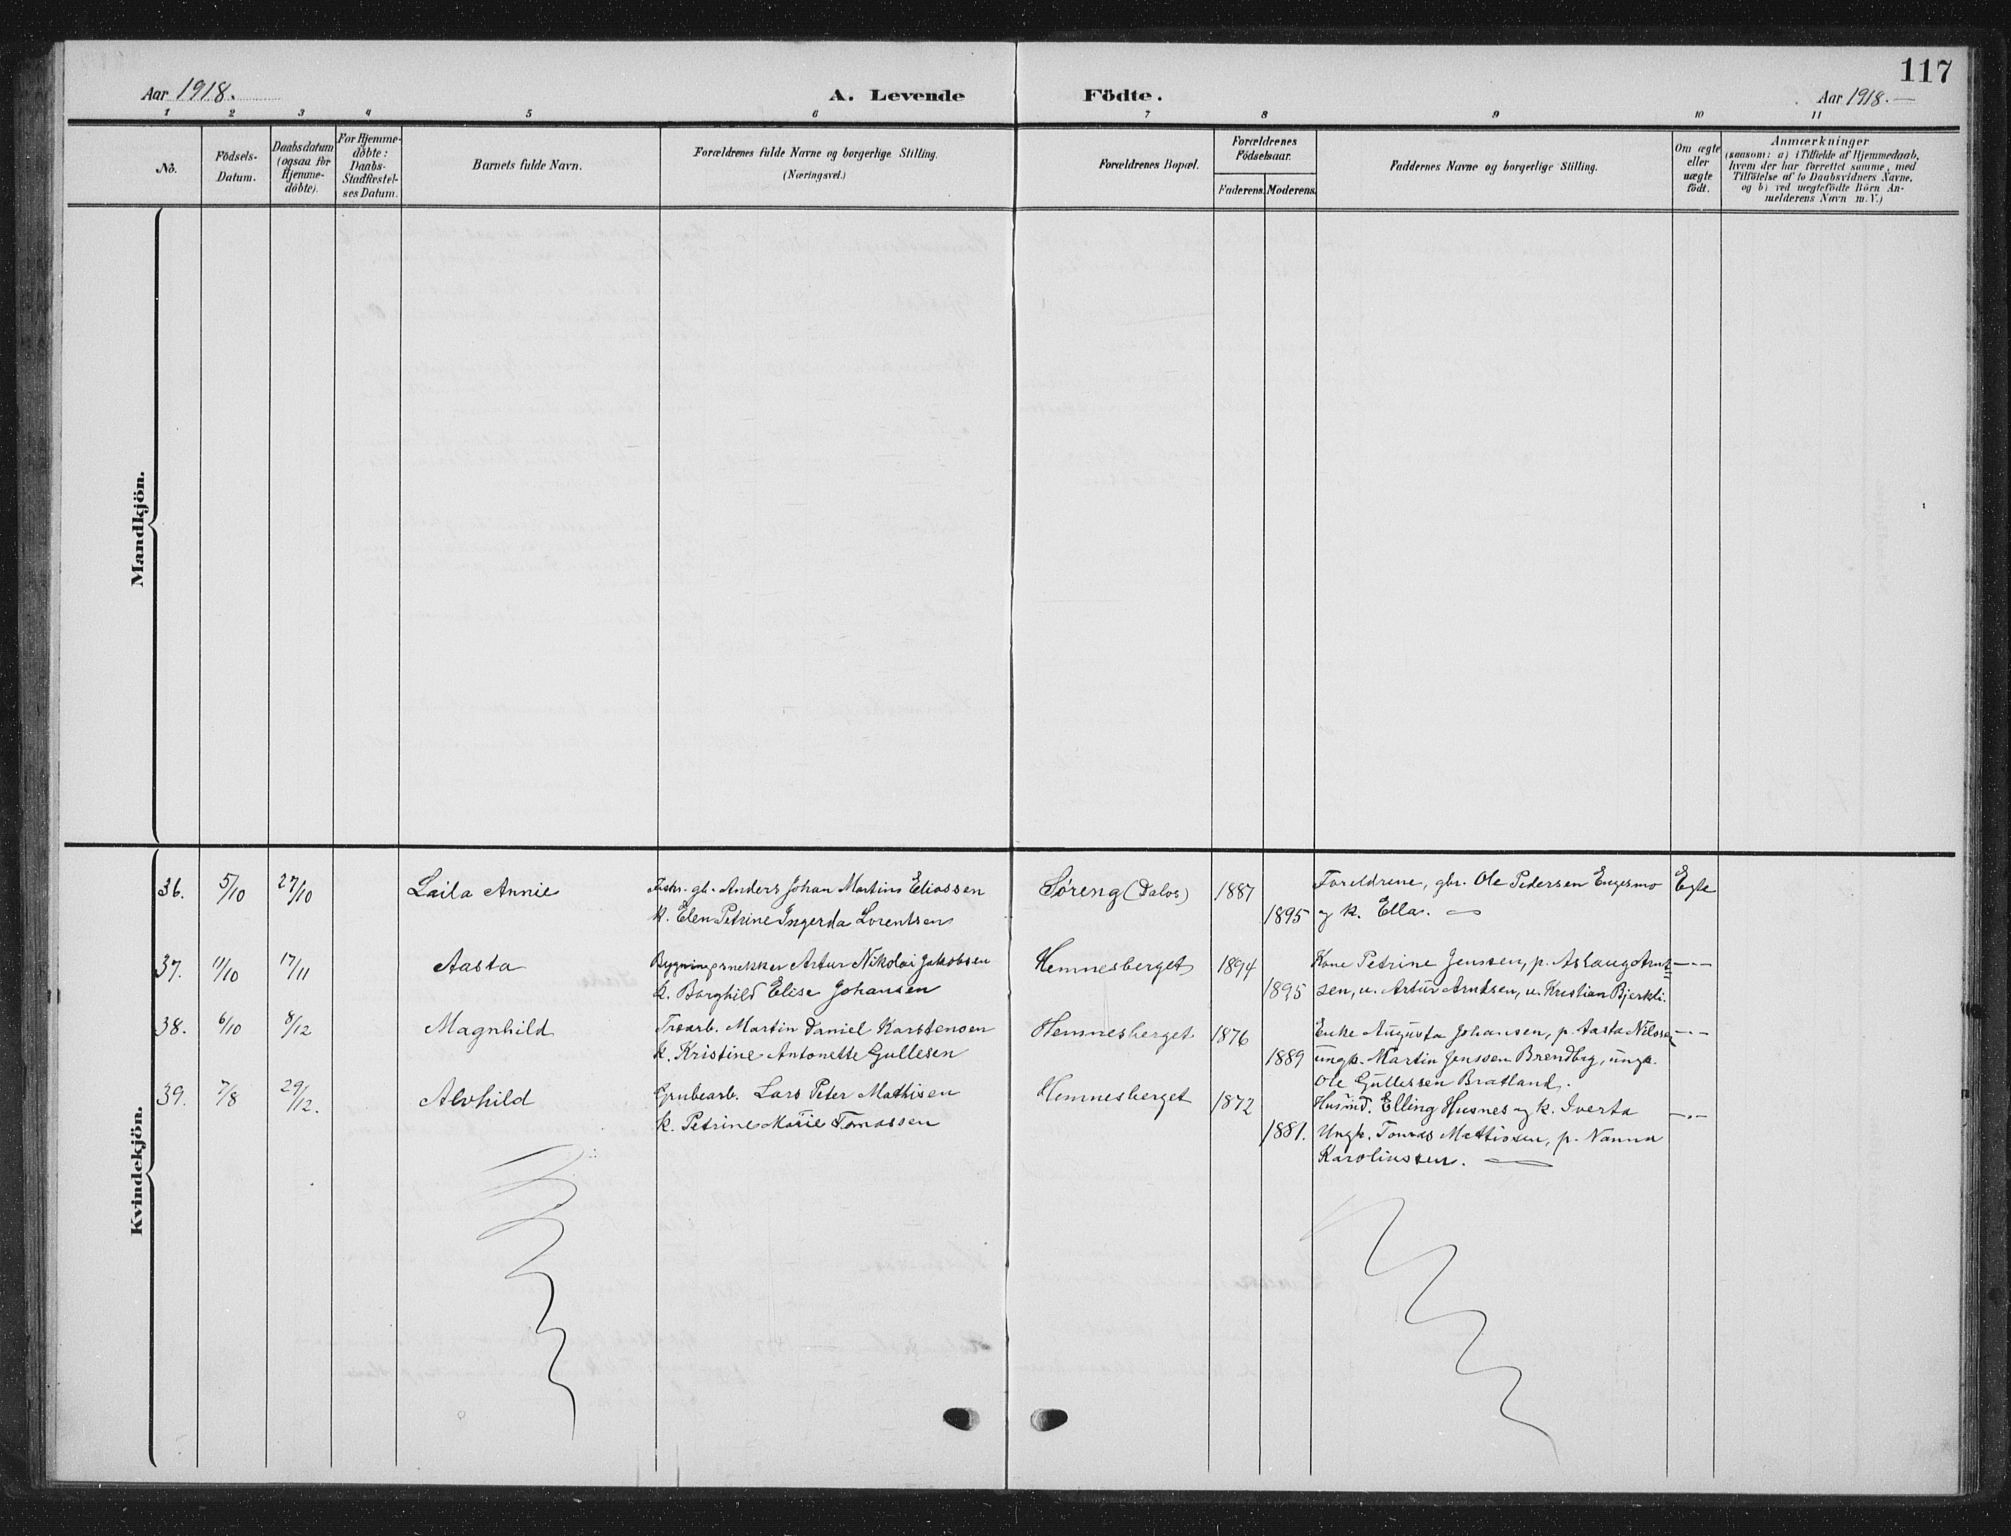 117
Aar 1918.
A. Levende Födte.
Aar 1918.—
1 2 3 4 5 6 7 8 9 10 11
No.
Födsels-
Datum.
Daabsdatum
(ogsaa for
Hjemme-
döbte).
For Hjemme-
döbte:
Daabs-
Stadfæstel-
ses Datum.
Barnets fulde Navn.
Forældrenes fulde Navne og borgerlige Stilling.
(Næringsvei.)
Forældrenes Bopæl.
Forældrenes
Födselsaar.
Faderens. Moderens.
Faddernes Navne og borgerlige Stilling.
Om ægte
eller
uægte
født.
Anmærkninger
(saasom: a) i Tilfælde af Hjemmedaab,
hvem der har forrettet samme, med
Tilföielse af to Daabsvidners Navne.
og b) ved uægtefödte Börn An-
melderens Navn m. V.)
Mandkjön.
Kvindekjön.
36. 5/10 27/10 Laila Annie Fisker. gb. Anders Johan Martins Eliassen Søreng (Dalos) 1887 Foreldrene, gbr. Ole Pedersen Engesmo Egte
k. Elen Petrine Ingerda Lorentsen 1895 og k. Ella.
37. 11/10 17/11 Aasta Bygningsnekker Artur Nikolai Jakobsen Hemnesberget 1894 Kone Petrine Jenssen, p. Aslaug Arnt= —"—
k. Borghild Elise Johansen 1895 sen, u. Artur Arntsen, u. Kristian Bjerkli.
38. 6/10 8/12 Magnhild Træarb. Martin Daniel Karstensen Hemnesberget 1876 Enke Augusta Johansen, p. Aasta Nilssen —"—
k. Kristine Antonette Gullesen 1889 ungk. Martin Jenssen Brendbg, ungk.
Ole Gullessen Bratland.
39. 7/8 29/12. Alvhild Grubearb. Lars Peter Mathisen Hemnesberget 1872 Husmd. Elling Husnes og k. Iverta —"—
k. Petrine Marie Tomassen 1881. Ungk. Tomas Mattissen, p. Nanna
Karolinssen.